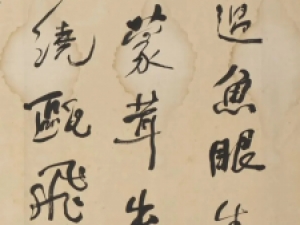 過魚眼生
蒙茸出
繞甌飛